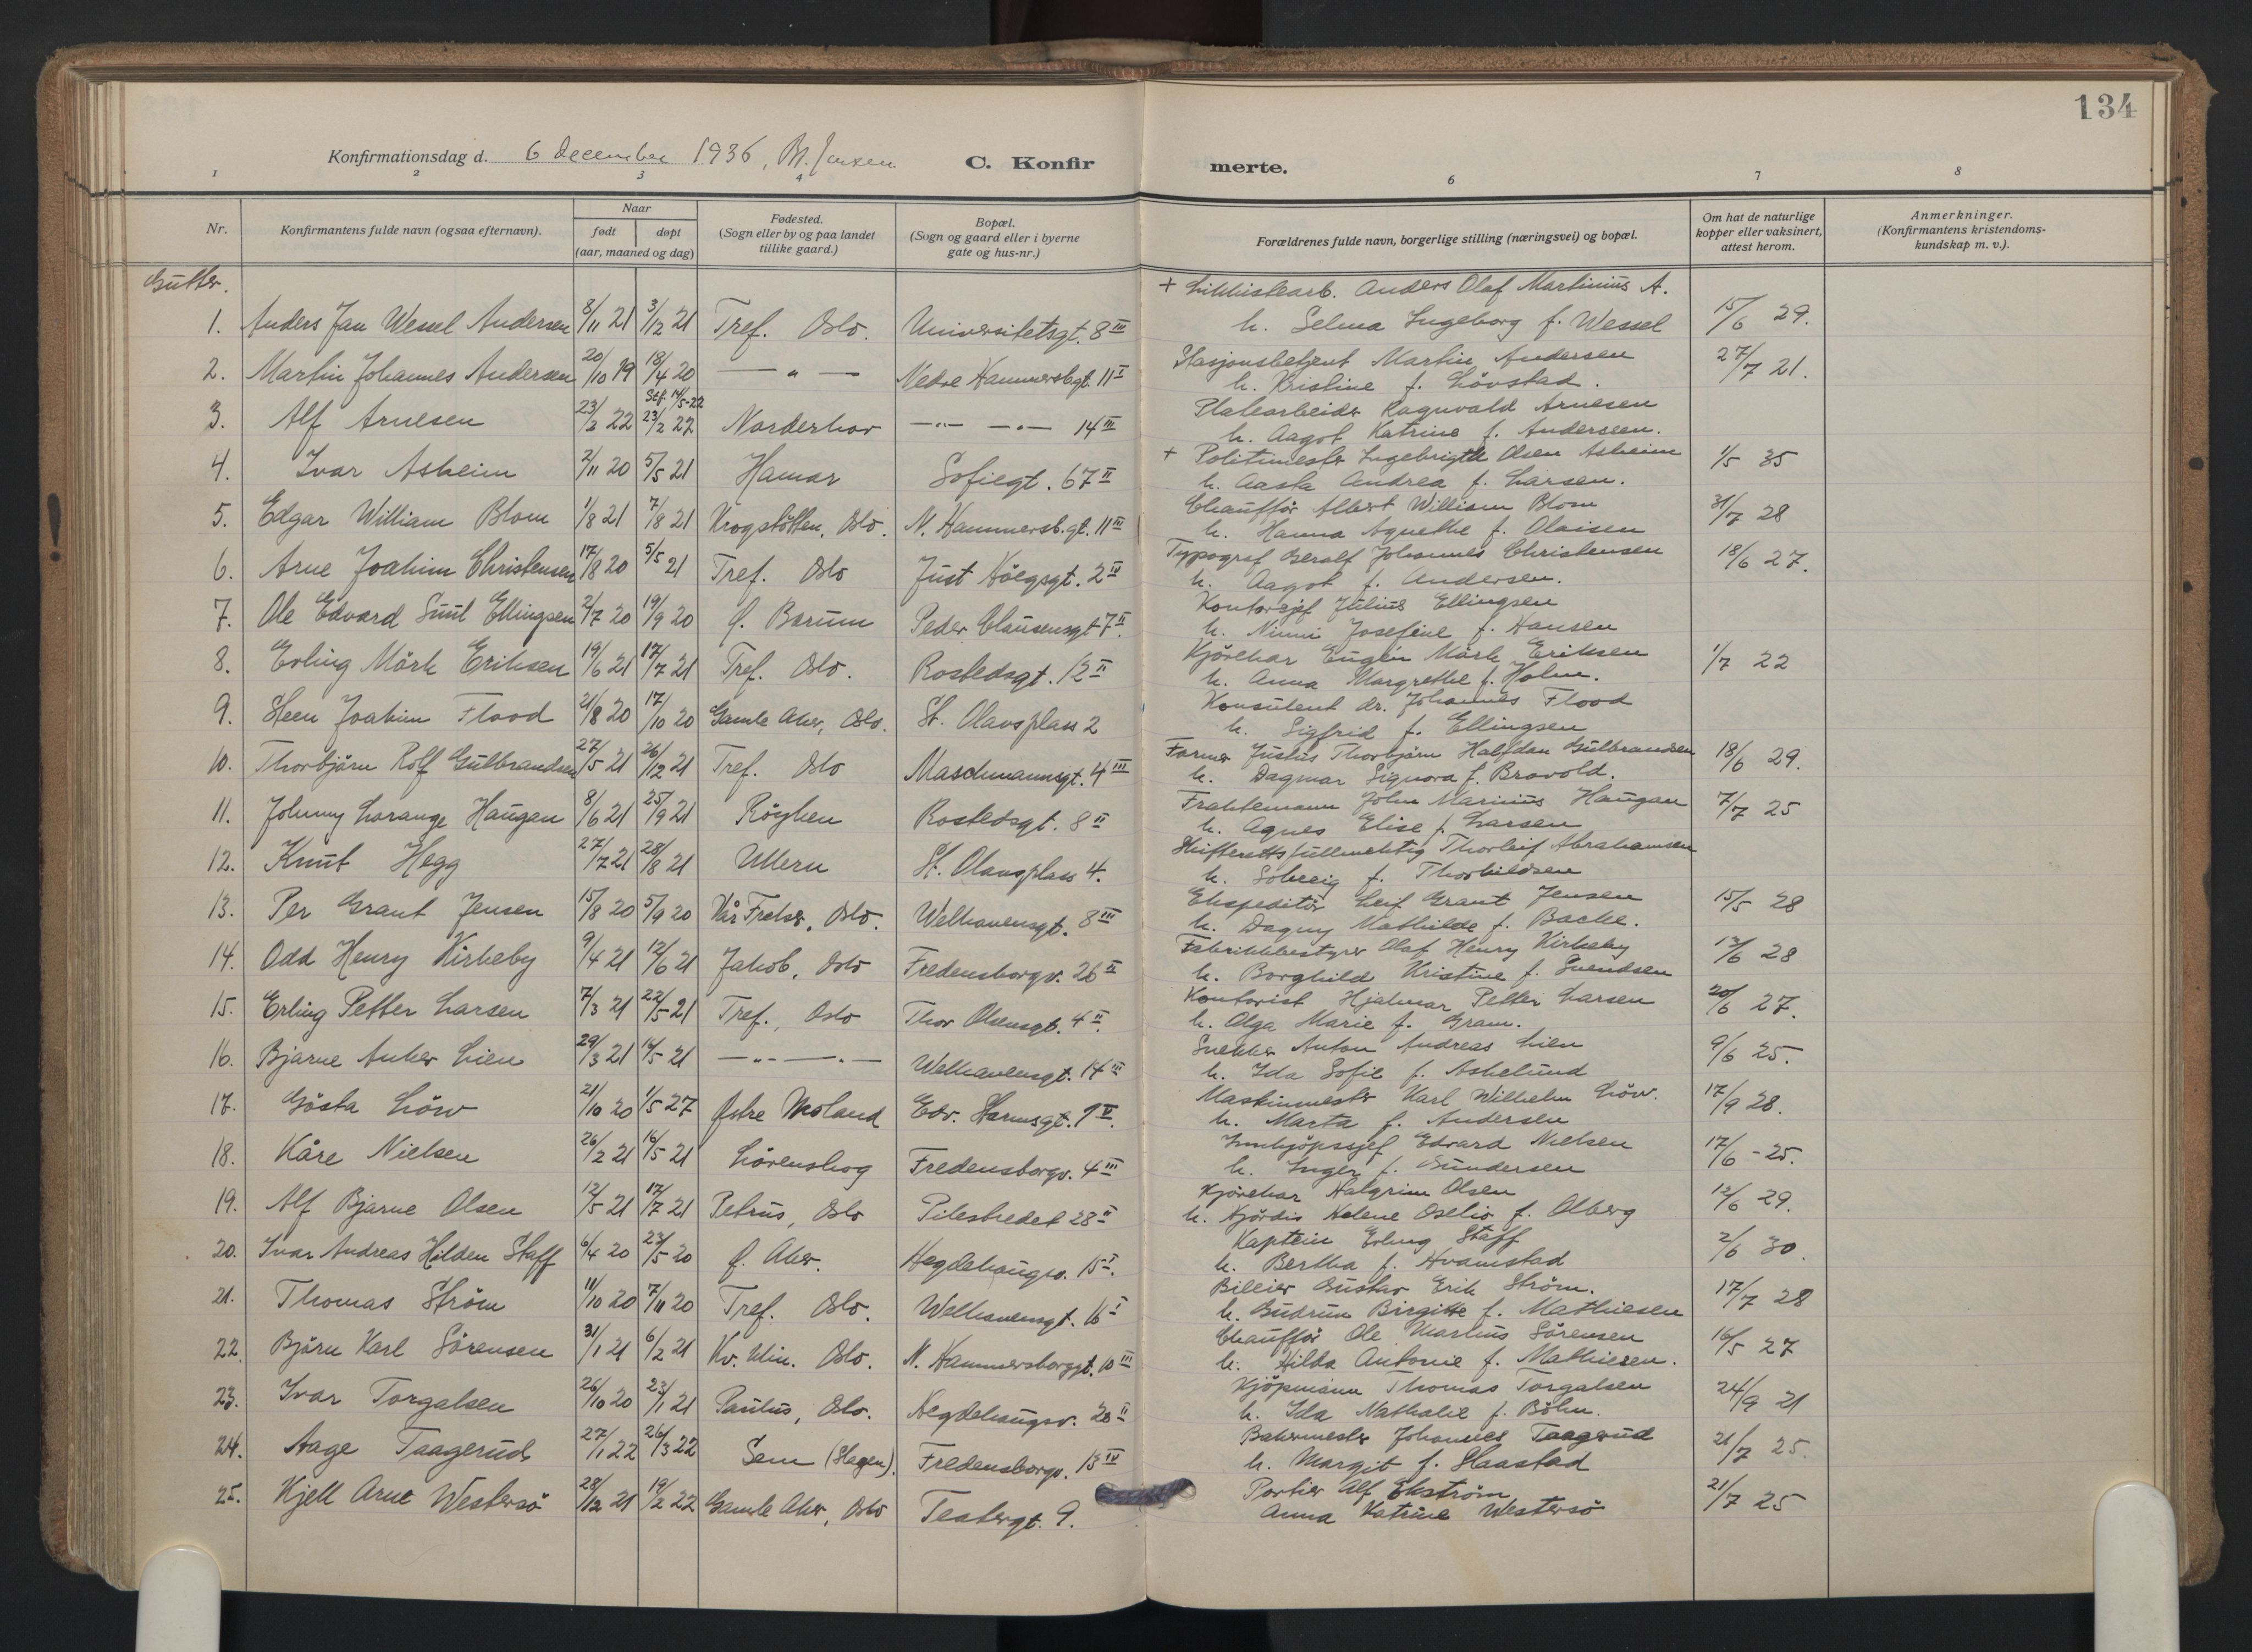 134
Konfirmationsdag d. 6 december 1936, Bl. Jensen. C. Konfir merte.
1 2 3 4 6 7 8
Nr. Konfirmantens fulde navn (ogsaa efternavn). Naar født døpt (aar, maaned og dag) Fødested. (Sogn eller by og paa landet tillike gaard.) Bopæl. (Sogn og gaard eller i byerne gate og hus-nr.) Forældrenes fulde navn, borgerlige stilling (næringsvei) og bopæl. Om hat de naturlige kopper eller vaksinert, attest herom. Anmerkninger. (Konfirmantens kristendoms-kundskap m. v.).
Gutter.
1. Anders Jan Wessel Andersen 8/11 21 3/12 21 Tref. Oslo. Universitetsgt. 8 III + Anders Olaf Martinius A. h. Selma Ingeborg f. Wessel 15/6 29.
2. Martin Johannes Andersen 20/10 19 18/4 20 — " — Nedre Hammersbgt. 11 I Stasjonsbetjent Martin Andersen h. Kristine f. Lövstad. 27/7 21.
3. Alf Arnesen 23/2 22 Stf. 14/5-22 23/2 22 Norderhov —"— —"— 14 III Platearbeider Ragnvald Arnesen h. Aagot Katrine f. Anderssen.
4. Ivar Asheim 2/11 20 5/5 21 Hamar Sofiegt. 67 II + Politimester Ingebrigth Olsen Asheim h. Aasta Andrea f. Larsen. 1/5 35
5. Edgar William Blom 1/8 21 7/8 21 Krogstötten, Oslo. N. Hammersb.gt. 11 III Chaufför Albert William Blom h. Hanna Agnethe f. Olaisen 31/7 28
6. Arne Joakim Christensen 17/8 20 5/5 21 Tref. Oslo Just Höegsgt. 2 IV Typograf Johannes Christensen h. Aagot f. Andersen. 18/6 27.
7. Ole Edvard Ellingsen 2/7 20 19/9 20 Ö. Bærum Peder Clausensgt 7 II. Kontorsjef Julius Ellingsen h. Ninni Josefine f. Hansen
8. Erling Mörk Eriksen 19/6 21 17/7 21 Tref. Oslo. Rostedsgt. 12 II Kjörekar Eugen Mörk Eriksen h. Anna Margrethe f. Holm. 1/7 22
9. Steen Joakim Flood 21/8 20 17/10 20 Gamle Aker, Oslo. St. Olavsplass 2 Konsulent dr. Johannes Flood h. Sigfrid f. Ellingsen
10. Thorbjörn Rolf Gulbrandsen 27/5 21 26/12 21 Tref. Oslo Maschmannsgt. 4 III Former Justus Thorbjörn Halfdan Gulbrandsen h. Dagmar Signora f. Bravold. 18/6 29.
11. Johnny Lorange Haugan 8/6 21 25/9 21 Röyken Rostedsgt. 8 II Fraktemann John Marinius Haugan h. Agnes Elise f. Larsen 7/7 25
12. Knut Hegg 27/7 21 28/8 21 Ullern St. Olavsplass 4. Skifterettsfullmektig Thorleif Abrahamsen h. Solveig f. Thorkildsen
13. Per Grant Jensen 15/8 20 5/9 20 Vår Frelser, Oslo. Welhavensgt. 8 III Ekspeditör Leif Grant Jensen h. Dagny Mathilde f. Bache. 15/5 28
14. Odd Henry Kirkeby 9/4 21 12/6 21 Jakob, Oslo Fredensborgv. 26 II Fabrikkbestyrer Olaf Henry Kirkeby h. Borghild Kristine f. Svendsen 13/6 28
15. Erling Petter Larsen 7/3 21 22/5 21 Tref., Oslo Thor Olsensgt. 4 II. Kontorist Hjalmar Petter Larsen h. Olga Marie f. Gram. 20/6 27.
16. Bjarne Anker Lien 29/3 21 14/5 21 —"— —"— Welhavensgt. 14 III Snekker Anton Andreas Lien h. Ida Sofie f. Askelund 9/6 25.
17. Gösta Löw 21/10 20 1/5 27 Östre Moland Edv. Stormsgt. 1 V. Maskinmester Karl Wilhelm Löw. h. Marta f. Andersen 17/9 28.
18. Kåre Nielsen 26/2 21 16/5 21 Lörenskog Fredensborgv. 4 III Innkjöpssjef Edvard Nielsen h. Inger f. Gundersen 17/6 - 25.
19. Alf Bjarne Olsen 12/5 21 17/7 21 Petrus, Oslo Pilestredet 28 II Kjörekar Halgrim Olsen h. Hjördis Helene Oselio f. Olberg 12/6 29.
20. Ivar Andreas Hilden Staff 6/4 20 23/5 20 Ö. Aker. Hegdehaugsv. 15 I. Kaptein Erling Staff h. Bertha f. Hvamstad 2/6 30.
21. Thomas Ström 11/10 20 7/11 20 Tref. Oslo. Welhavensgt. 16 I Bileier Gustav Erik Ström. h. Gudrun Birgitte f. Mathiesen 17/7 28
22. Björn Karl Sörensen 31/1 21 6/2 21 Kv. klin. Oslo. N. Hammersborggt. 10 III Chaufför Ole Marius Sörensen h. Hilda Antonie f. Mathiesen. 16/5 27
23. Ivar Torgalsen 26/10 20 23/1 21 Paulus, Oslo. Hegdehaugsv. 20 II Kjöpmann Thomas Torgalsen h. Ida Nathalie f. Böhn. 24/9 21
24. Aage Taagerud 27/1 22 26/3 22 Sem (Slagen). Fredensborgv. 13 IV Bakermester Johannes Taagerud h. Margit f. Haastad 21/7 25
25. Kjell Arne Westersö 28/12 21 19/2 22 Gamle Aker, Oslo Teatergt. 9. Portier Alf Ekström Anna Katrine Westersö 21/7 25